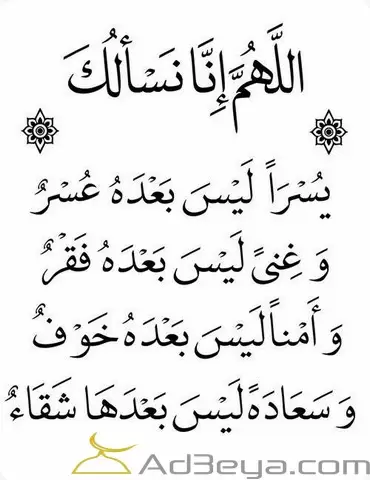 اللَّهُمَّ إِنَّا نَسْأَلُكَ
يُسْرَاً لَيْسَ بَعْدَهُ عُسْرٌ
وَ غِنىً لَيْسَ بَعْدَهُ فَقْرٌ
وَ أَمْناً لَيْسَ بَعْدَهُ خَوْفٌ
وَ سَعَادَةً لَيْسَ بَعْدَهَا شَقَاءٌ
Ad3eya.com